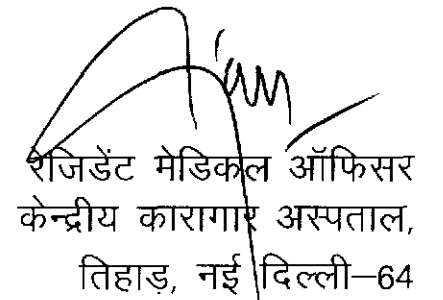 रेजिडेंट मेडिकल ऑफिसर
केन्द्रीय कारागार अस्पताल,
तिहाड़, नई दिल्ली–64